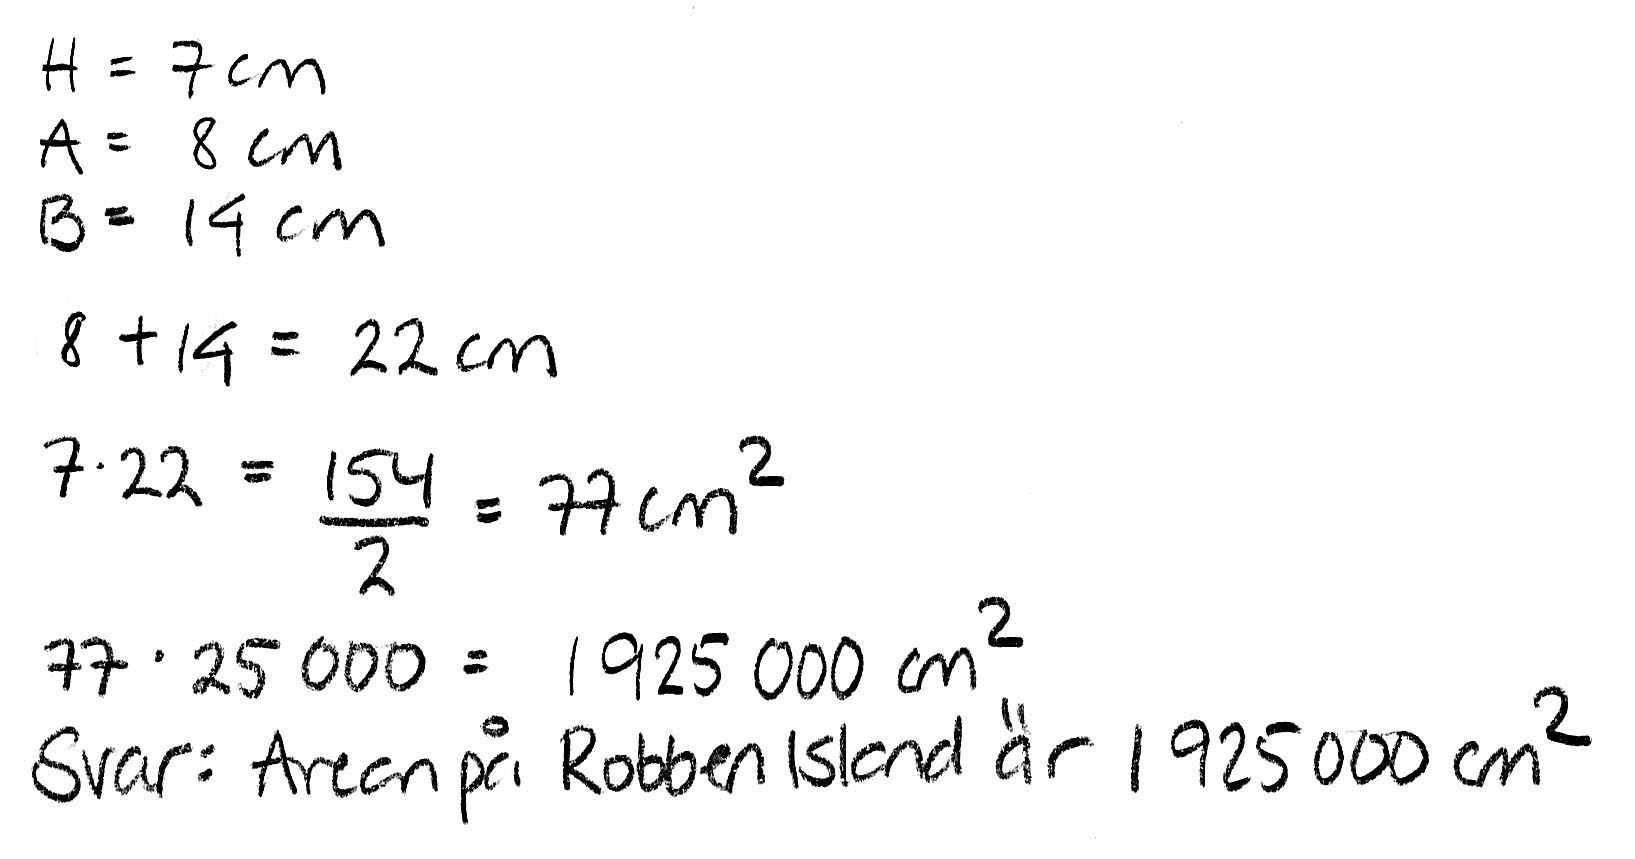 H = 7 cm
A = 8 cm
B = 14 cm
8 + 14 = 22 cm
7 · 22 = 154/2 = 77 cm²
77 · 25 000 = 1 925 000 cm²
Svar: Arean på Robben Island är 1 925 000 cm²